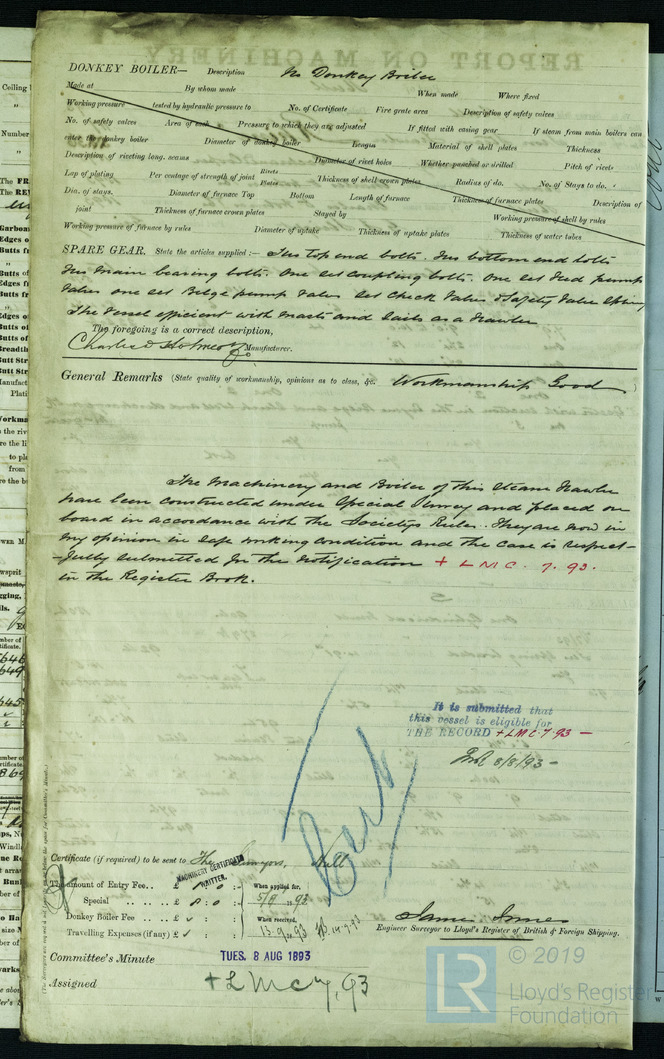 DONKEY BOILER— Description No Donkey Boiler
Made at By whom made When made Where fixed
Working pressure tested by hydraulic pressure to No. of Certificate Fire grate area Description of safety valves
No. of safety valves Area of each Pressure to which they are adjusted If fitted with easing gear If steam from main boilers can
enter the donkey boiler Diameter of donkey boiler Length Material of shell plates Thickness
Description of riveting long. seams Diameter of rivet holes Whether punched or drilled Pitch of rivets
Lap of plating Per centage of strength of joint Rivets Plates Thickness of shell crown plates Radius of do. No. of Stays to do.
Dia. of stays. Diameter of furnace Top Bottom Length of furnace Thickness of furnace plates Description of
joint Thickness of furnace crown plates Stayed by Working pressure of shell by rules
Working pressure of furnace by rules Diameter of uptake Thickness of uptake plates Thickness of water tubes
SPARE GEAR. State the articles supplied:— Two top end bolts. Two bottom end bolts
Two main bearing bolts. One set coupling bolts. One set Feed pump
Valves one set Bilge pump valves set Check Valves & Safety Valve Spring
The Vessel efficient with masts and sails as a Trawler
The foregoing is a correct description,
Charles D Holmes & Co. Manufacturer.
General Remarks (State quality of workmanship, opinions as to class, &c. Workmanship Good
The Machinery and Boiler of this Steam Trawler
have been constructed under Special Survey and placed on
board in accordance with the Societys Rules. They are now in
my opinion in safe working condition and the case is respect-
-fully submitted for the notification + L M C. 7. 93.
in the Register Book.
It is submitted that
this vessel is eligible for
THE RECORD + L M C. 7. 93 —
8/8/93 —
Cert
Certificate (if required) to be sent to The Surveyors, Hull
MACHINERY CERTIFICATE
WRITTEN.
The amount of Entry Fee.. £ When applied for,
Special .. .. .. .. £ 8 : 0 : 5/8 93
Donkey Boiler Fee .. .. £ When received,
Travelling Expenses (if any) £ 13. 9. 93
James Innes
Engineer Surveyor to Lloyd's Register of British & Foreign Shipping.
Committee's Minute TUES. 8 AUG 1893
Assigned + L M C 7, 93
LR © 2019
Lloyd's Register
Foundation